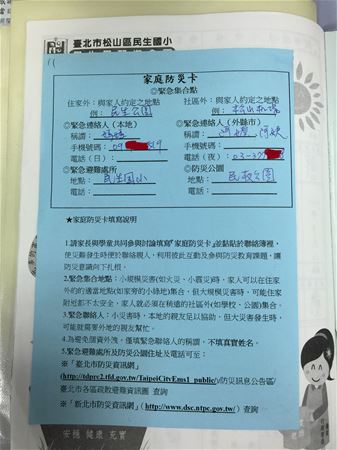 臺北市松山區民生國小
家庭防災卡
◎緊急集合點
住家外：與家人約定之地點
例：民生公園
社區外：與家人約定之地點
例：松山機場
◎緊急連絡人（本地）
稱謂：媽媽
手機號碼：09 819
電話（日）：
◎緊急連絡人（外縣市）
稱謂：
手機號碼：
電話（夜）：03-39
◎緊急避難處所
地點：民生國小
電話：
◎防災公園
地點：民權公園
電話：
★家庭防災卡填寫說明
1.請家長與學童共同參與討論填寫『家庭防災卡』並黏貼於聯絡簿裡，
使災難發生時便於聯絡親人，利用彼此互動及參與防災教育課題，讓
防災意識向下扎根。
2.緊急集合地點：小規模災害(如火災、小震災)時，家人可以在住家
外的約適當地點(如家旁的小綠地)集合，但大規模災害時，可能住家
附近都不太安全，家人就必須在稍遠的社區外(如學校、公園)集合。
3.緊急聯絡人：小災害時，本地的親友足以協助，但大災害發生時，
可能就需要外地的親友幫忙。
4.為避免個資外洩，僅填緊急聯絡人的稱謂，不填寫真實姓名。
5.緊急避難處所及防災公園住址及電話可至：
※「臺北市防災資訊網」
(http://tdprc2.tfd.gov.tw/TaipeiCityEms1_public/)/防災訊息公告區/
臺北市各區疏散避難資訊圖 查詢
※「新北市防災資訊網」(http://www.dsc.ntpc.gov.tw/) 查詢
安穩 健康 充實